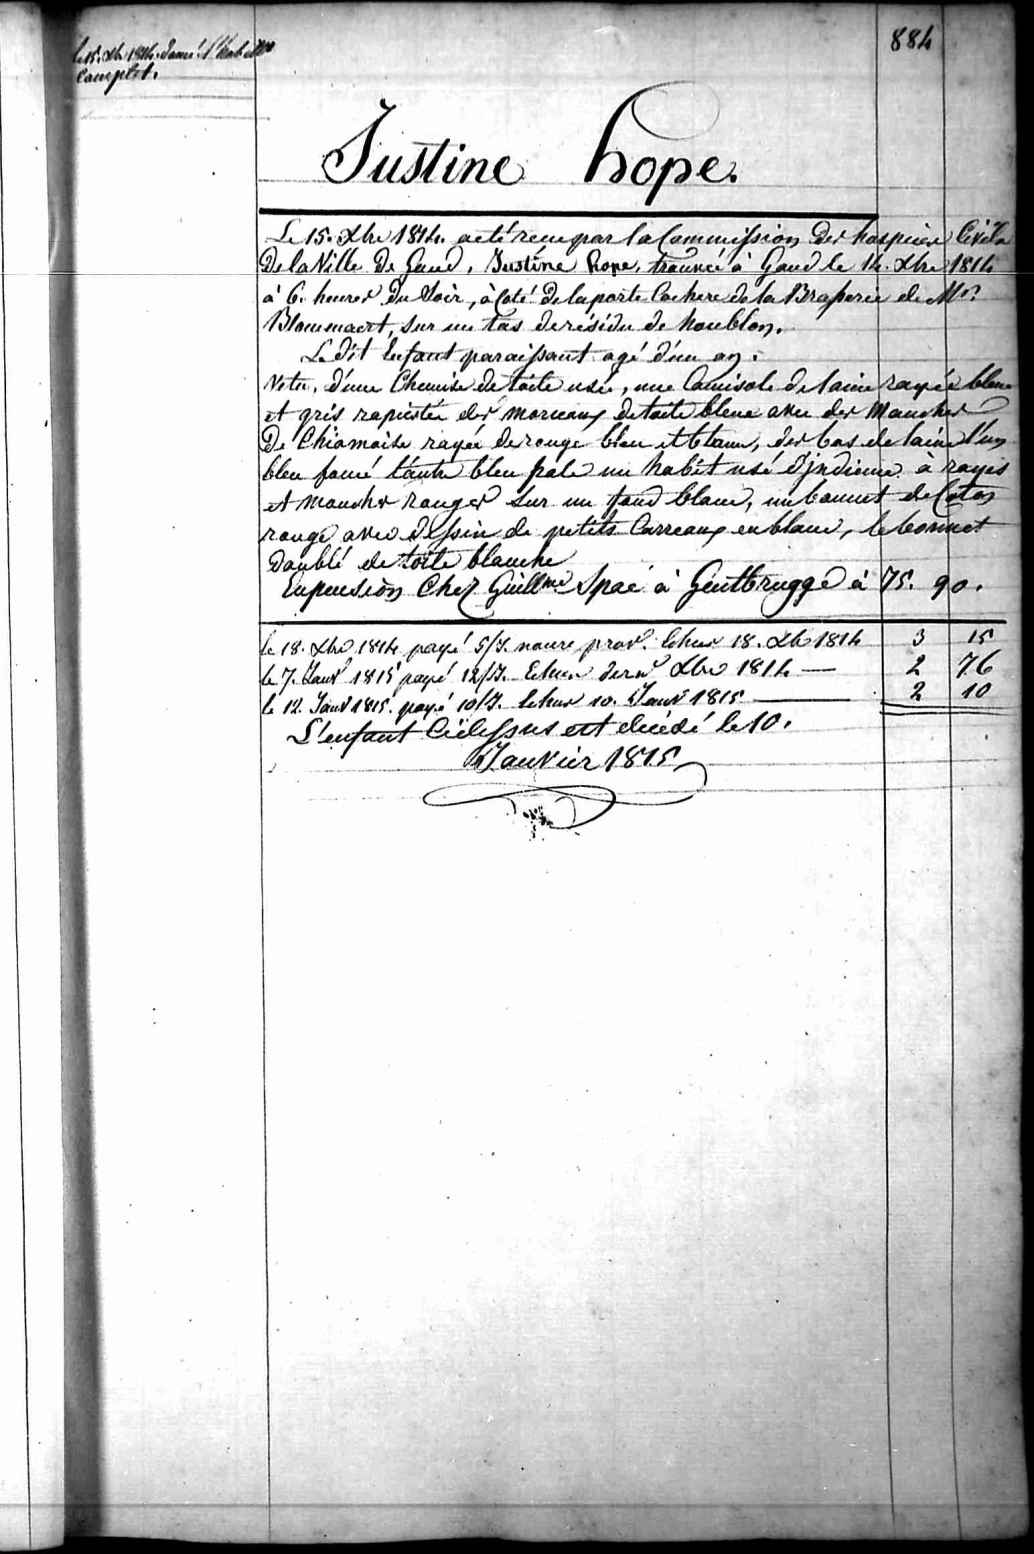 le 15. Xbre 1814. donné l'habillem
Complet.
884
Justine hope.
Le 15. Xbre 1814. a été recu par la Commission des hospices Civils
De la Ville De Gand, Justine hope, trouvée à Gand le 14. Xbre 1814
à 6. heures du Soir, à Coté De la porte Cochere de la Brasserie de Mr.
Blommaert, Sur un tas de résidu de houblon.
Le dit Enfant paraissant agé d'un an.
Vetu, d'une Chemise de toile usée, une Camisole de laine rayée bleu
et gris rapiecée des morceaux de toile bleue avec des Manches
De Chiamoise rayée de rouge bleu et blanc, des bas de laine l'un
bleu foncé l'autre bleu pale un habit usé d'jndienne à rayes
et mouches rouges Sur un fond blanc, un bonnet de Coton
rouge avec dessin de petits Carreaux en blanc, le bonnet
doublé de toile blanche
Enpension Chez Guillme Spae à Gentbrugge à 75. 90.
le 18. Xbre 1814 payé 5/J. nource prov. Echus 18. Xb 1814 3 15
le 7. Janvr 1815 payé 12/J. Echus dernr Xbre 1814 — 2 76
le 12. Janvr 1815. payé 10/J. Echus 10. Janvr 1815 — 2 10
L'enfant Cidessus est décédé le 10.
Janvier 1815